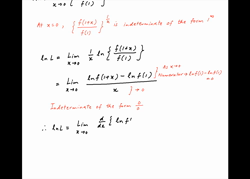 x→0 { f(1)
At x=0, { f(1+x) / f(1) }^(1/x) is indeterminate of the form 1^∞
ln L = Lim x→0 1/x ln { f(1+x) / f(1) }
= Lim x→0 ln f(1+x) − ln f(1) / x
As x→0
Numerator → ln f(1) − ln f(1)
→0
} → 0
Indeterminate of the form 0/0
∴ ln L = Lim x→0 d/dx { ln f(